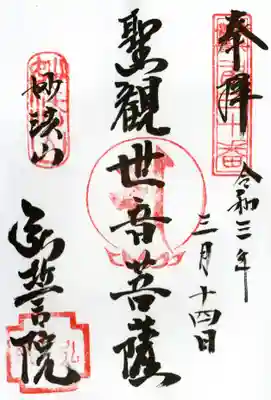 奉拝
令和三年
三月十四日
聖観世音菩薩
妙法山
弘誓院